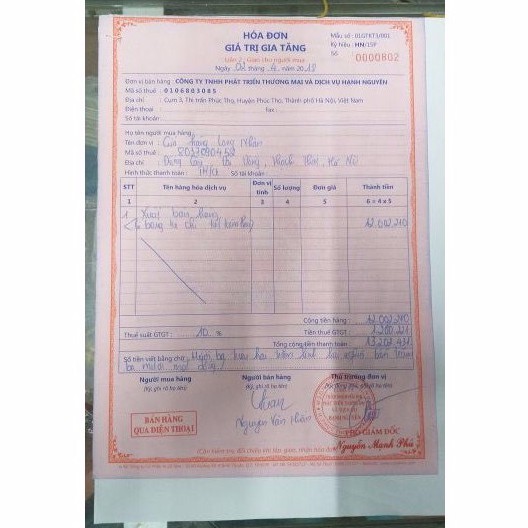 HÓA ĐƠN
GIÁ TRỊ GIA TĂNG
Liên 2: Giao cho người mua
Ngày 02 tháng 4 năm 2018
Mẫu số : 01GTKT3/001
Ký hiệu : HN/15P
Số 0000802
Đơn vị bán hàng : CÔNG TY TNHH PHÁT TRIỂN THƯƠNG MẠI VÀ DỊCH VỤ HẠNH NGUYÊN
Mã số thuế : 0106803085
Địa chỉ : Cụm 3, Thị trấn Phúc Thọ, Huyện Phúc Thọ, Thành phố Hà Nội, Việt Nam
Điện thoại : Fax :
Số tài khoản :
Họ tên người mua hàng :
Tên đơn vị : Cửa hàng Long Nhàn
Mã số thuế :
Địa chỉ : Thạch Thất, Hà Nội
Hình thức thanh toán : TM/CK Số tài khoản :
STT Tên hàng hóa dịch vụ Đơn vị tính Số lượng Đơn giá Thành tiền
1 2 3 4 5 6 = 4 x 5
1 Xuất bán hàng 12.002.210
( bảng kê chi tiết kèm theo)
Cộng tiền hàng : 12.002.210
Thuế suất GTGT : 10 % Tiền thuế GTGT : 1.200.221
Tổng cộng tiền thanh toán : 13.202.431
Số tiền viết bằng chữ : Mười ba triệu hai trăm linh hai nghìn bốn trăm
ba mươi mốt đồng
Người mua hàng Người bán hàng Thủ trưởng đơn vị
(Ký, ghi rõ họ tên) (Ký, ghi rõ họ tên)
BÁN HÀNG
QUA ĐIỆN THOẠI
Nguyễn Văn
PHÓ GIÁM ĐỐC
Nguyễn Mạnh Phú